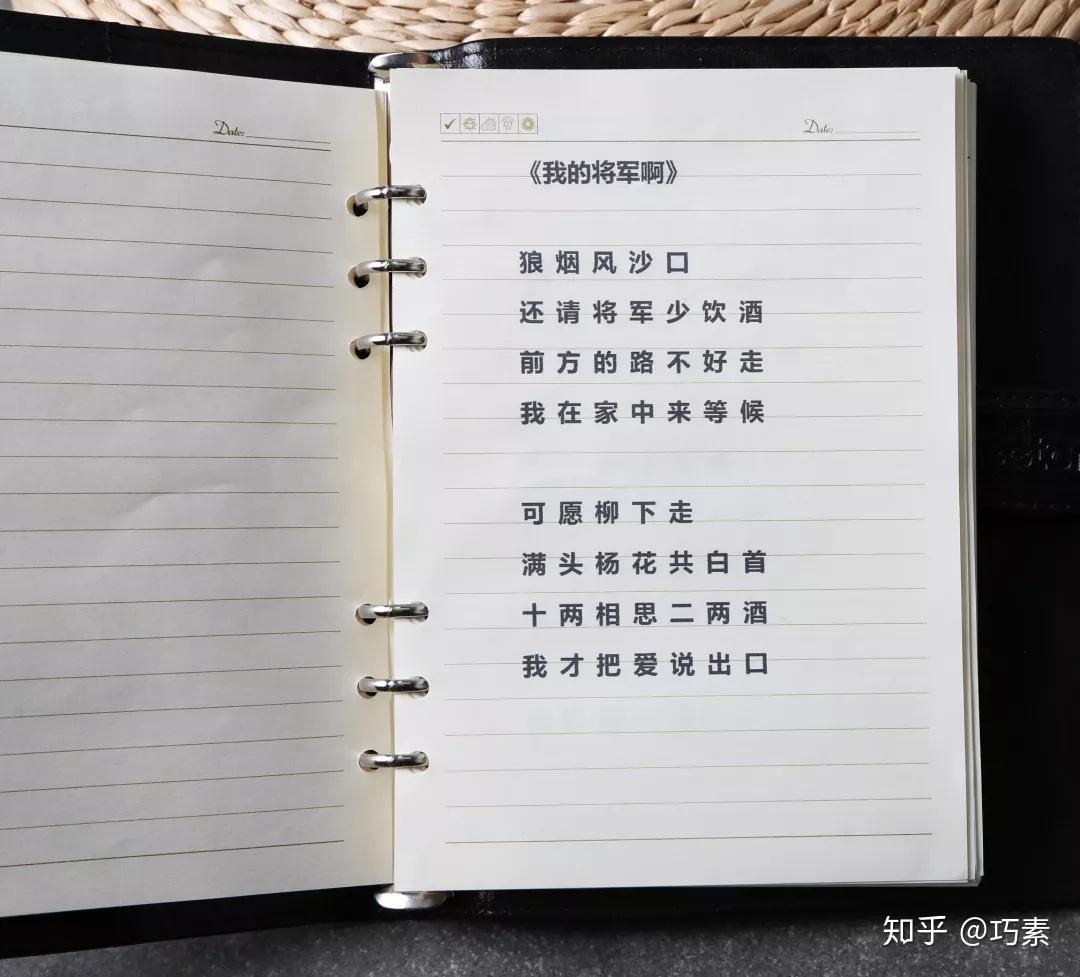 Date:
Date:
《我的将军啊》
狼烟风沙口
还请将军少饮酒
前方的路不好走
我在家中来等候
可愿柳下走
满头杨花共白首
十两相思二两酒
我才把爱说出口
知乎 @巧素